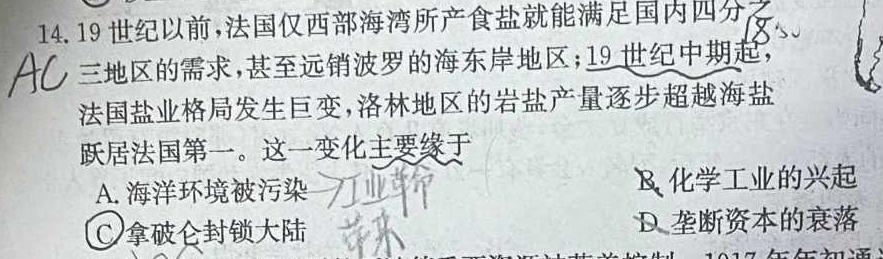 14. 19世纪以前,法国仅西部海湾所产食盐就能满足国内四分之
三地区的需求,甚至远销波罗的海东岸地区;19世纪中期起,
AC
法国盐业格局发生巨变,洛林地区的岩盐产量逐步超越海盐
跃居法国第一。这一变化主要缘于
A. 海洋环境被污染
工业革命
带来
B. 化学工业的兴起
C. 拿破仑封锁大陆
D. 垄断资本的衰落